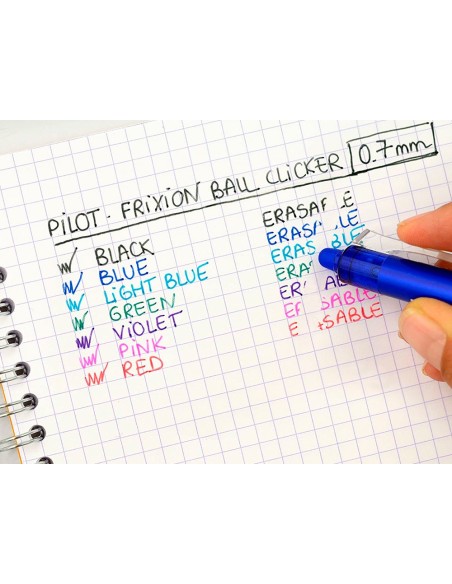 PILOT - FRIXION BALL CLICKER 0.7mm
BLACK
BLUE
LIGHT BLUE
GREEN
VIOLET
PINK
RED
ERASA LE
ERASA LE
ERAS BLE
ERA
ER ABL
E SABLE
E SABLE